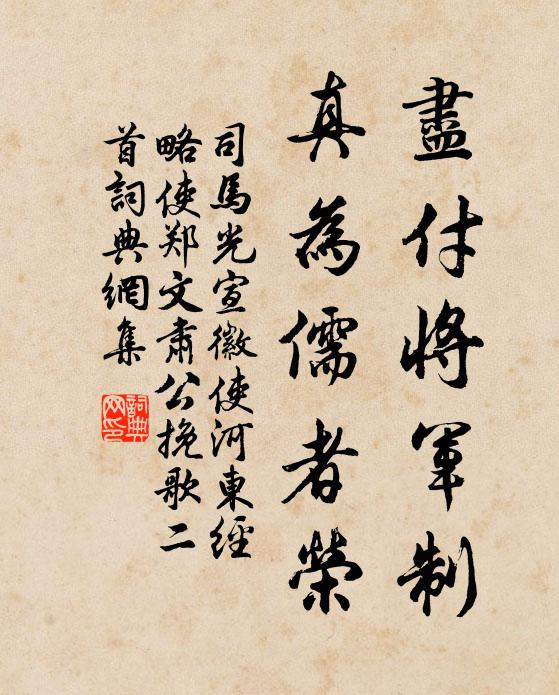 盡付將軍制
真為儒者榮
司馬光宣徽使河東經
略使郑文肅公挽歌二
首詞典網集
詞典
网印